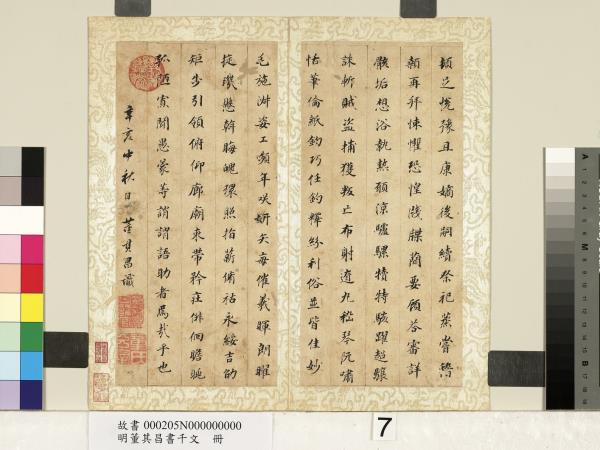 頓足悅豫且康嫡後嗣續祭祀蒸嘗稽
顙再拜悚懼恐惶牋牒簡要顧答審詳
骸垢想浴執熱願涼驢騾犢特駭躍超驤
誅斬賊盜捕獲叛亡布射遼丸嵇琴阮嘯
恬筆倫紙鈞巧任釣釋紛利俗並皆佳妙
毛施淑姿工顰年咲妍矢每催羲暉朗曜
旋璣懸斡晦魄環照指薪脩祜永綏吉劭
矩步引領俯仰廊廟束帶矜莊徘徊瞻眺
孤陋寡聞愚蒙等誚謂語助者焉哉乎也
辛亥中秋日 董其昌識
故書 000205N000000000
明董其昌書千文 冊
7